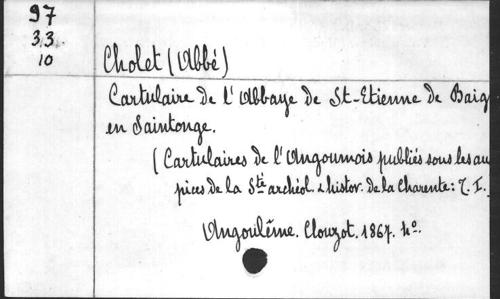 97
33
10
Cholet (Abbé)
Cartulaire de l'Abbaye de St-Etienne de Baig
en Saintonge.
(Cartulaires de l'Angoumois publiés sous les au
pices de la Sté archéol. & histor. de la Charente: T. I.
Angoulême. Clouzot. 1867. 4°.